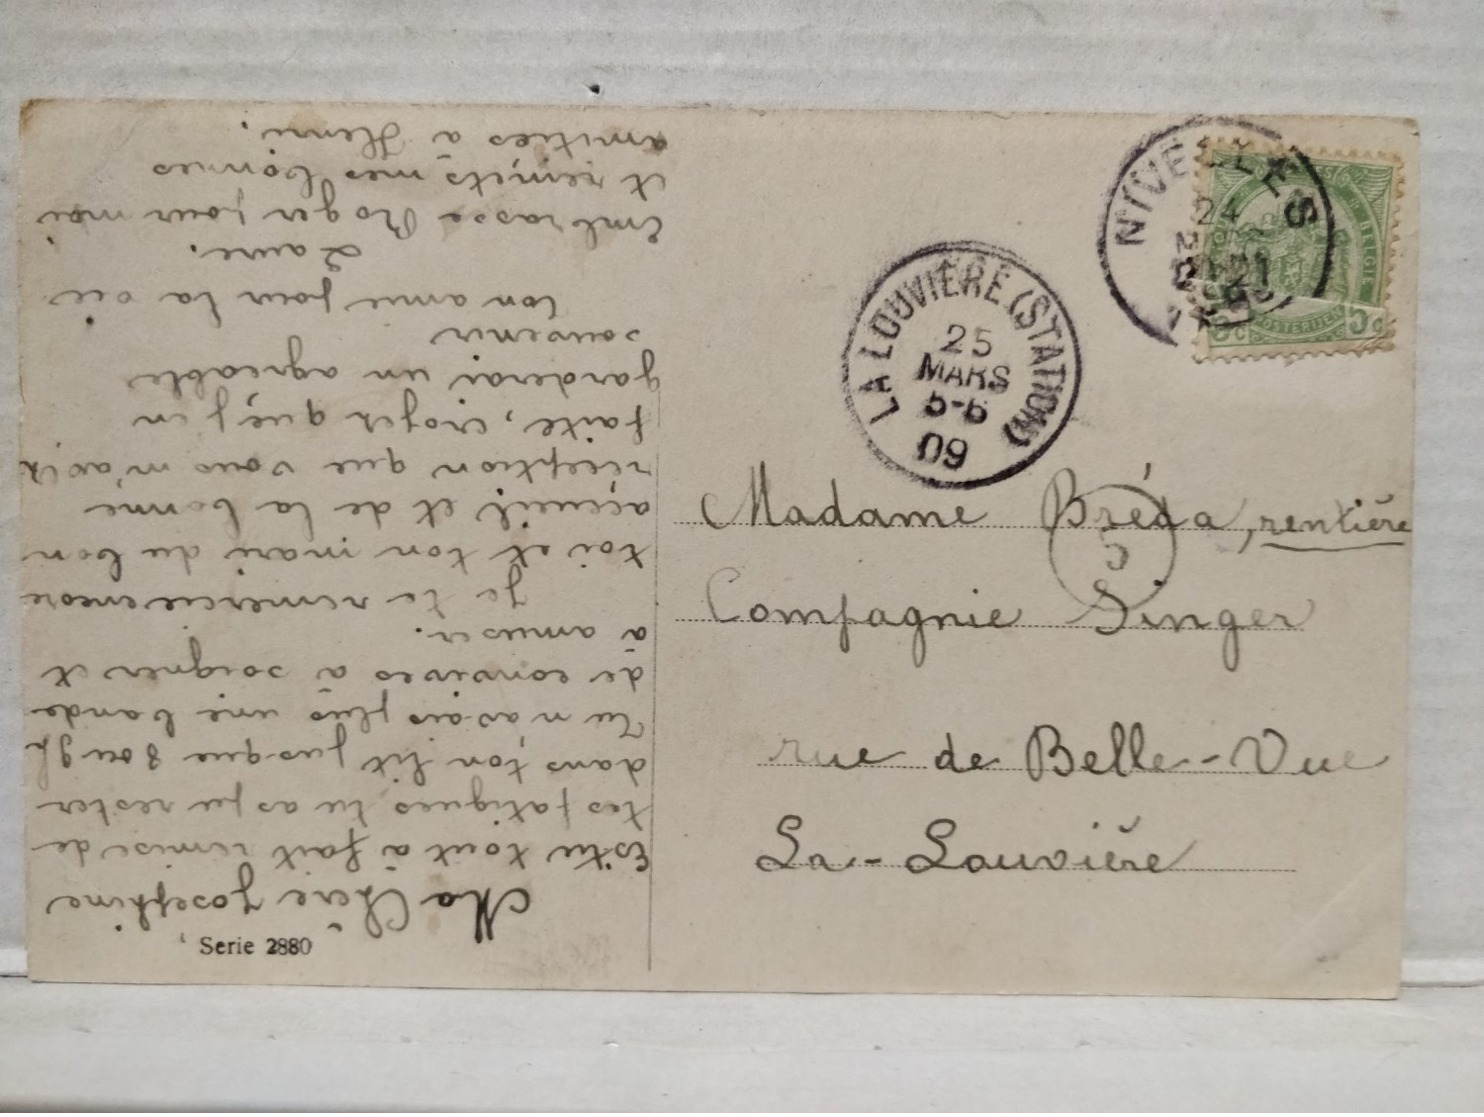 Ma Chère Josephine
Estu tout à fait remise de
tes fatigues, tu as pu rester
dans ton lit jusque 8 ou 9h
Tu n'avais plus une bande
de convives à soigner et
à amuser.
Je te remercie encore
toi et ton mari du bon
accueil et de la bonne
réception que vous m'avez
faite, croyez que j'en
garderai un agréable
souvenir
ton amie pour la vie
Laure.
Embrasse Roger pour moi
et remets mes bonnes
amitiés à Henri.
Serie 2880
NIVELLES
24
LA LOUVIÈRE (STATION)
25
MARS
5-6
09
BELGIE
POSTERIJEN
5c
5
Madame Bréda, rentière
Compagnie Singer
rue de Belle-Vue
La-Louvière